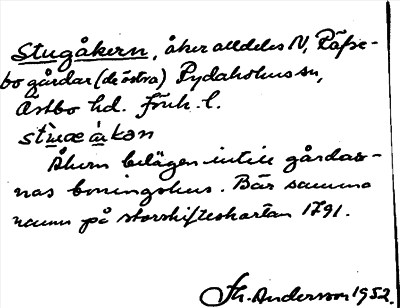 Stugåkern, åker alldeles N, Räfse-
bo gårdar (de östra) Rydaholms sn,
Östbo hd. Jönk. l.
Åkern belägen intill gårdar-
nas boningshus. Bär samma
namn på storskifteskartan 1791.
Th. Anderson 1952.